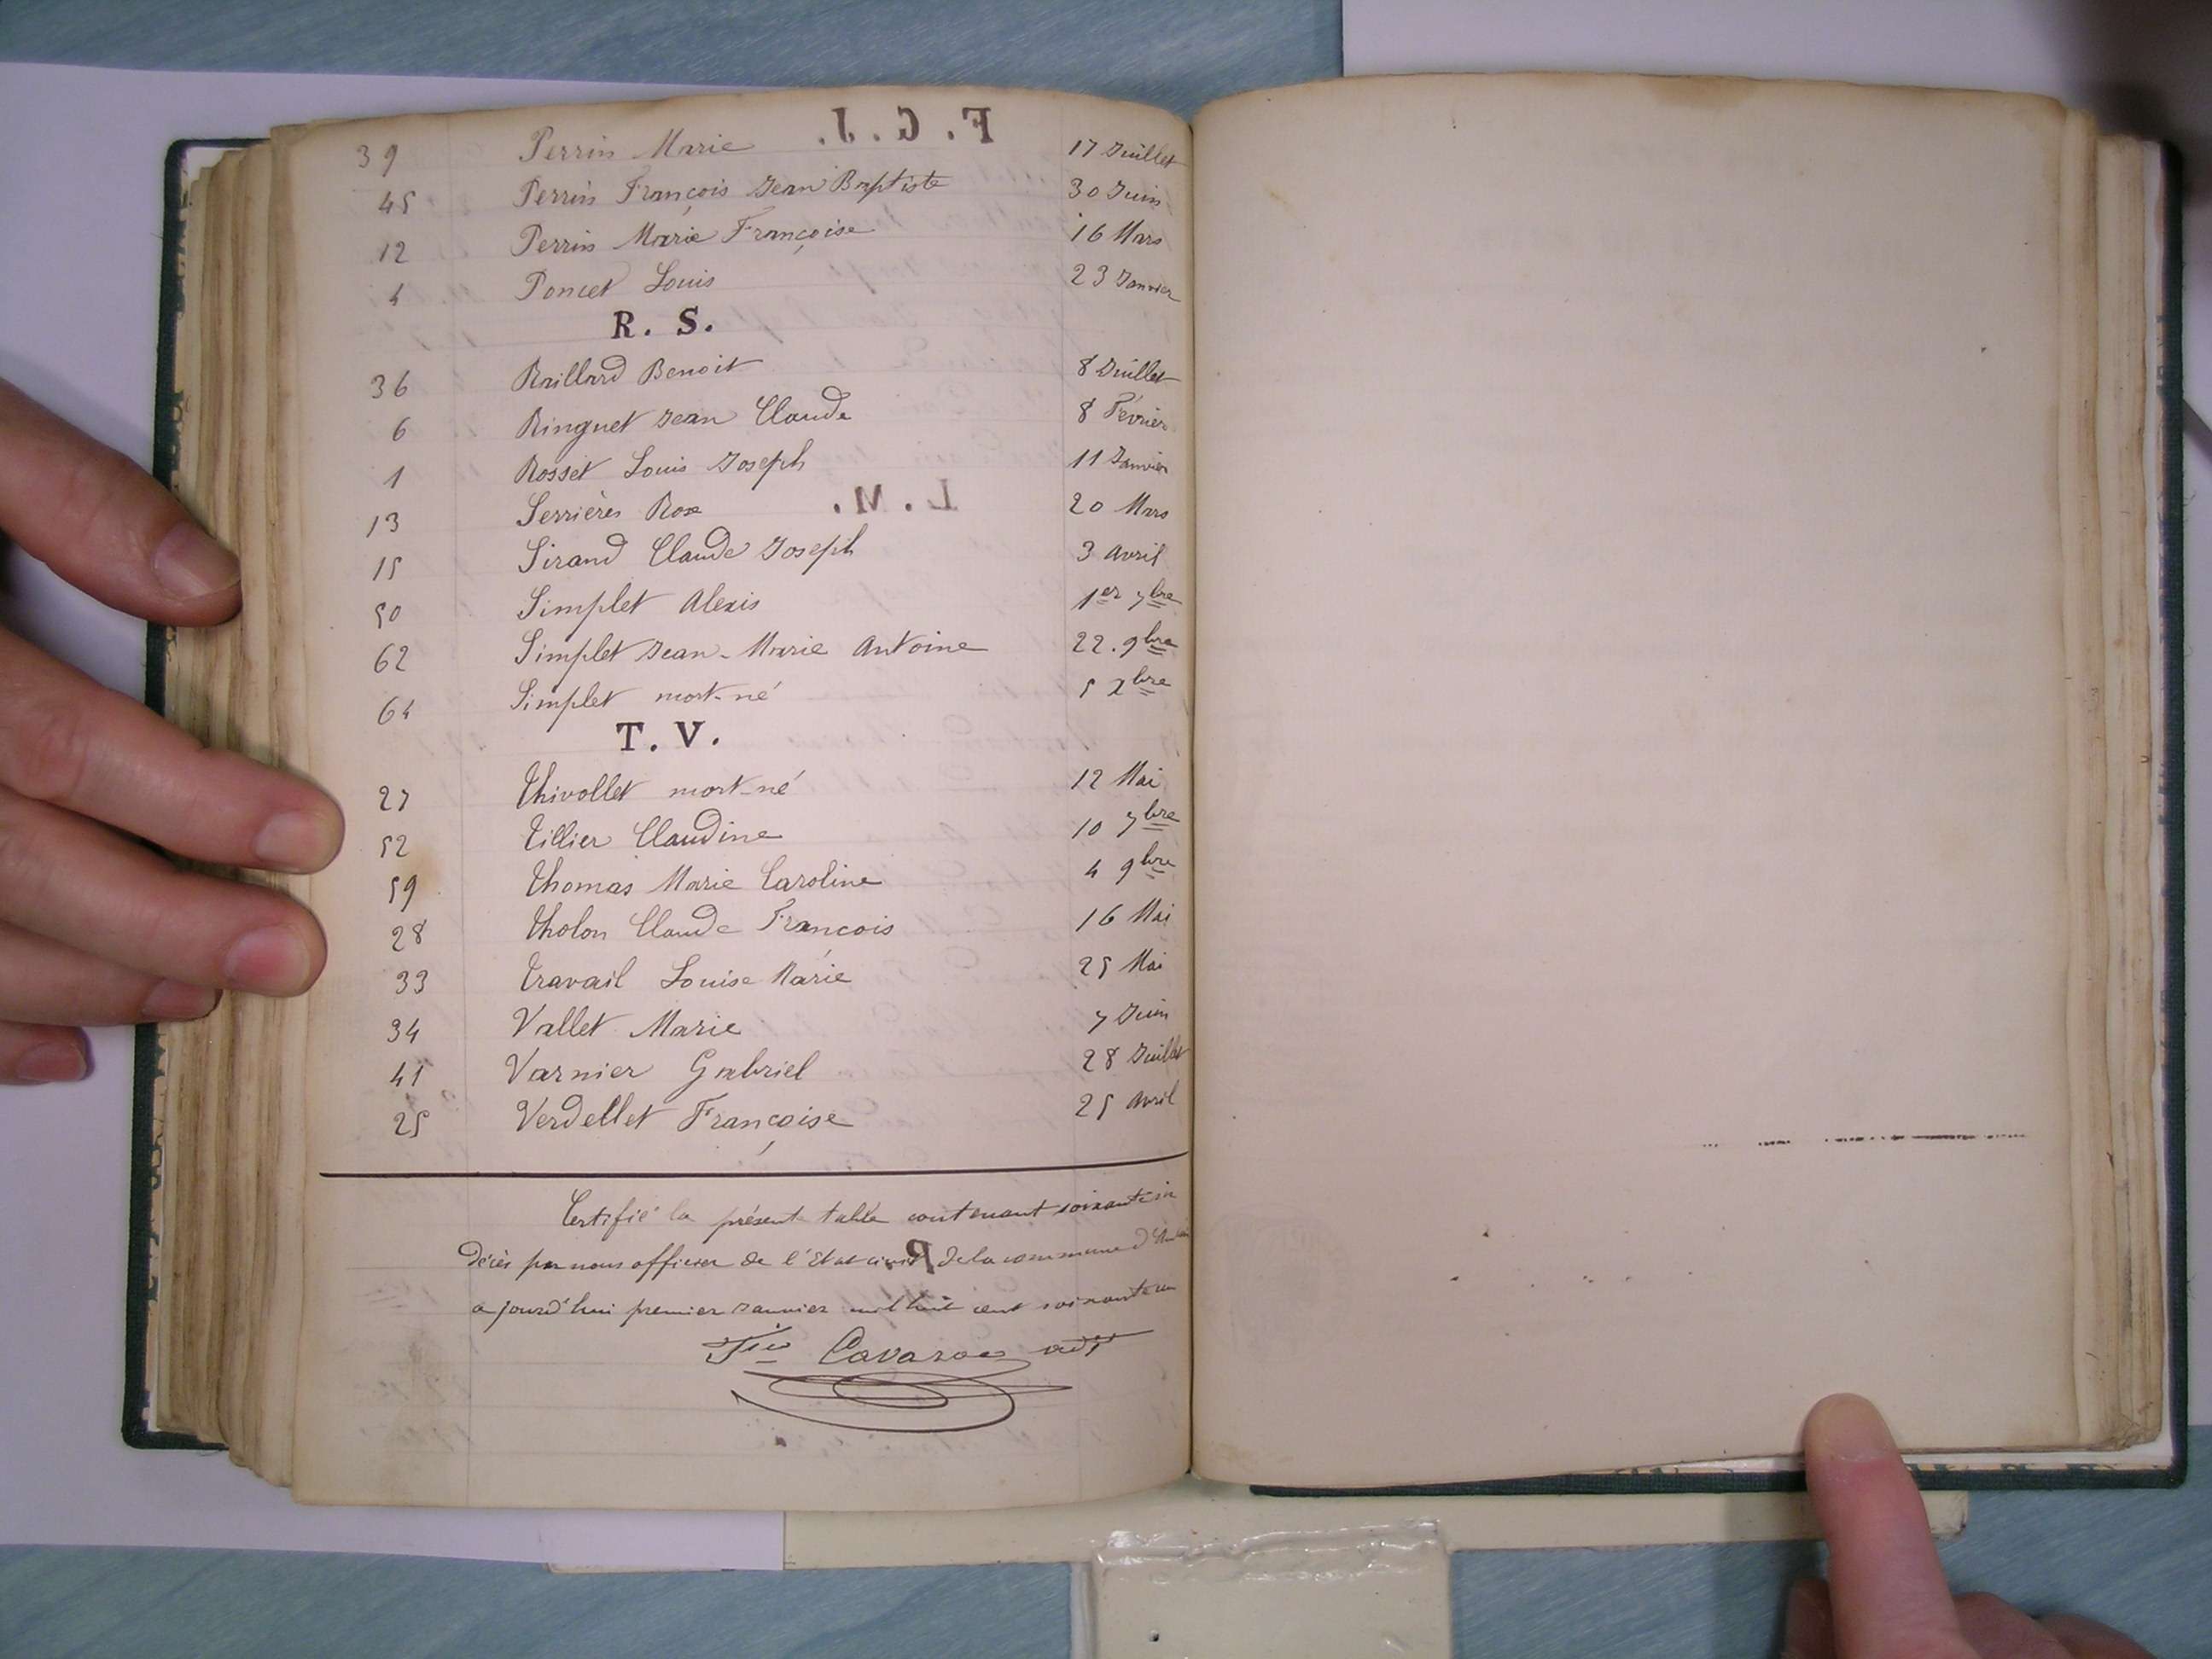 F. G. J.
39 Perrin Marie 17 Juillet
45 Perrin François Jean Baptiste 30 Juin
12 Perrin Marie Françoise 16 Mars
4 Poncet Louis 23 Janvier
R. S.
36 Raillard Benoit 8 Juillet
6 Ringuet Jean Claude 8 Février
1 Rosset Louis Joseph 11 Janvier
L. M.
13 Serrières Rose 20 Mars
15 Sirand Claude Joseph 3 avril
50 Simplet Alexis 1er 7bre
62 Simplet Jean-Marie Antoine 22. 9bre
64 Simplet mort-né 5 Xbre
T. V.
27 Thivollet mort-né 12 Mai
52 Tillier Claudine 10 7bre
59 Thomas Marie Caroline 4 9bre
28 Tholon Claude François 16 Mai
33 Travail Louise Marie 25 Mai
34 Vallet Marie 7 Juin
41 Varnier Gabriel 28 Juillet
25 Verdellet Françoise 25 avril
Certifié la présente table contenant soixante
Décès par nous officier de l'Etat civil de la commune
a jourd'hui premier Janvier mil huit cent soixante
Cavaroc adjt